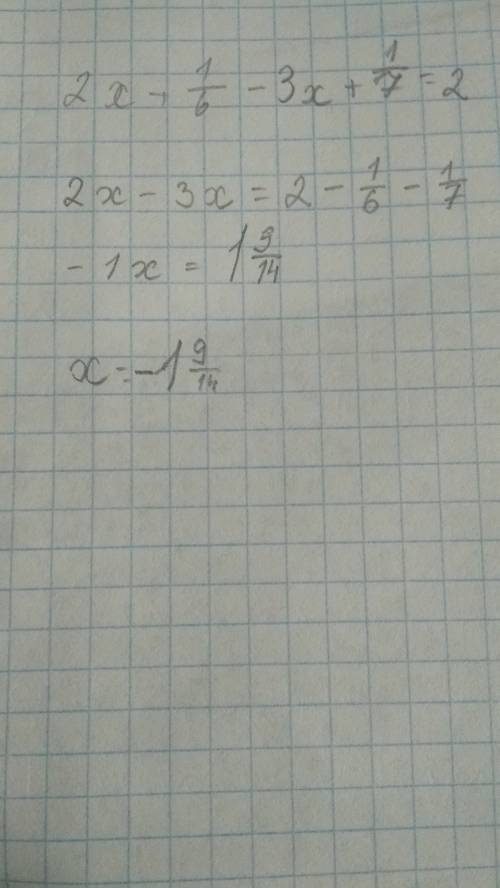 2x + 1/6 - 3x + 1/7 = 2
2x - 3x = 2 - 1/6 - 1/7
- 1x = 1 9/14
x = -1 9/14